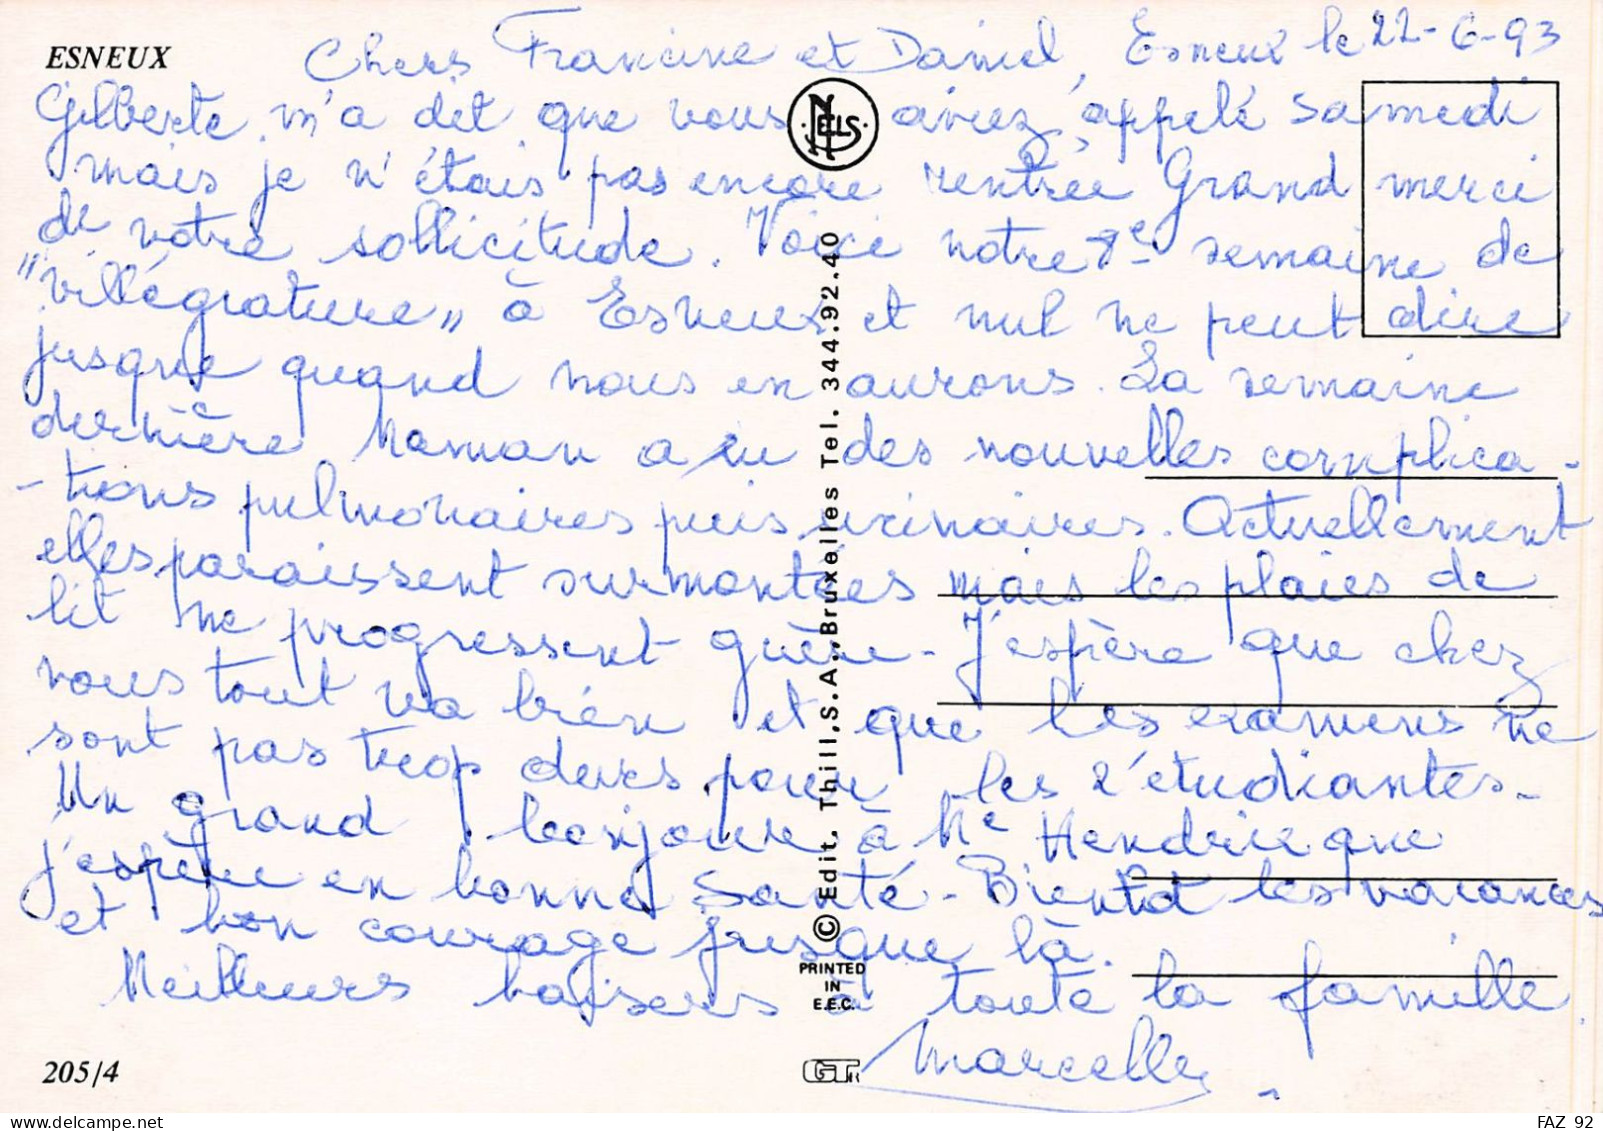 ESNEUX
Chers Francine et Daniel, Esneux le 22-6-93
Gilberte m'a dit que vous aviez appelé samedi
mais je n'étais pas encore rentrée Grand merci
de votre sollicitude. Voici notre 7e semaine de
"villégiature" à Esneux et nul ne peut dire
jusque quand nous en aurons. La semaine
dernière Maman a eu des nouvelles complica-
-tions pulmonaires puis urinaires. Actuellement
elles paraissent surmontées mais les plaies de
lit ne progressent guère - J'espère que chez
vous tout va bien et que les examens ne
sont pas trop durs pour les 2 étudiantes -
Un grand bonjour à Me Hendrique
j'espère en bonne santé - Bientôt les vacances
et bon courage jusque là.
Meilleurs baisers à toute la famille.
Marcelle
NELS
© Edit. Thill, S.A., Bruxelles Tel. 344.92.40
PRINTED
IN
E.E.C.
205/4
FAZ 92